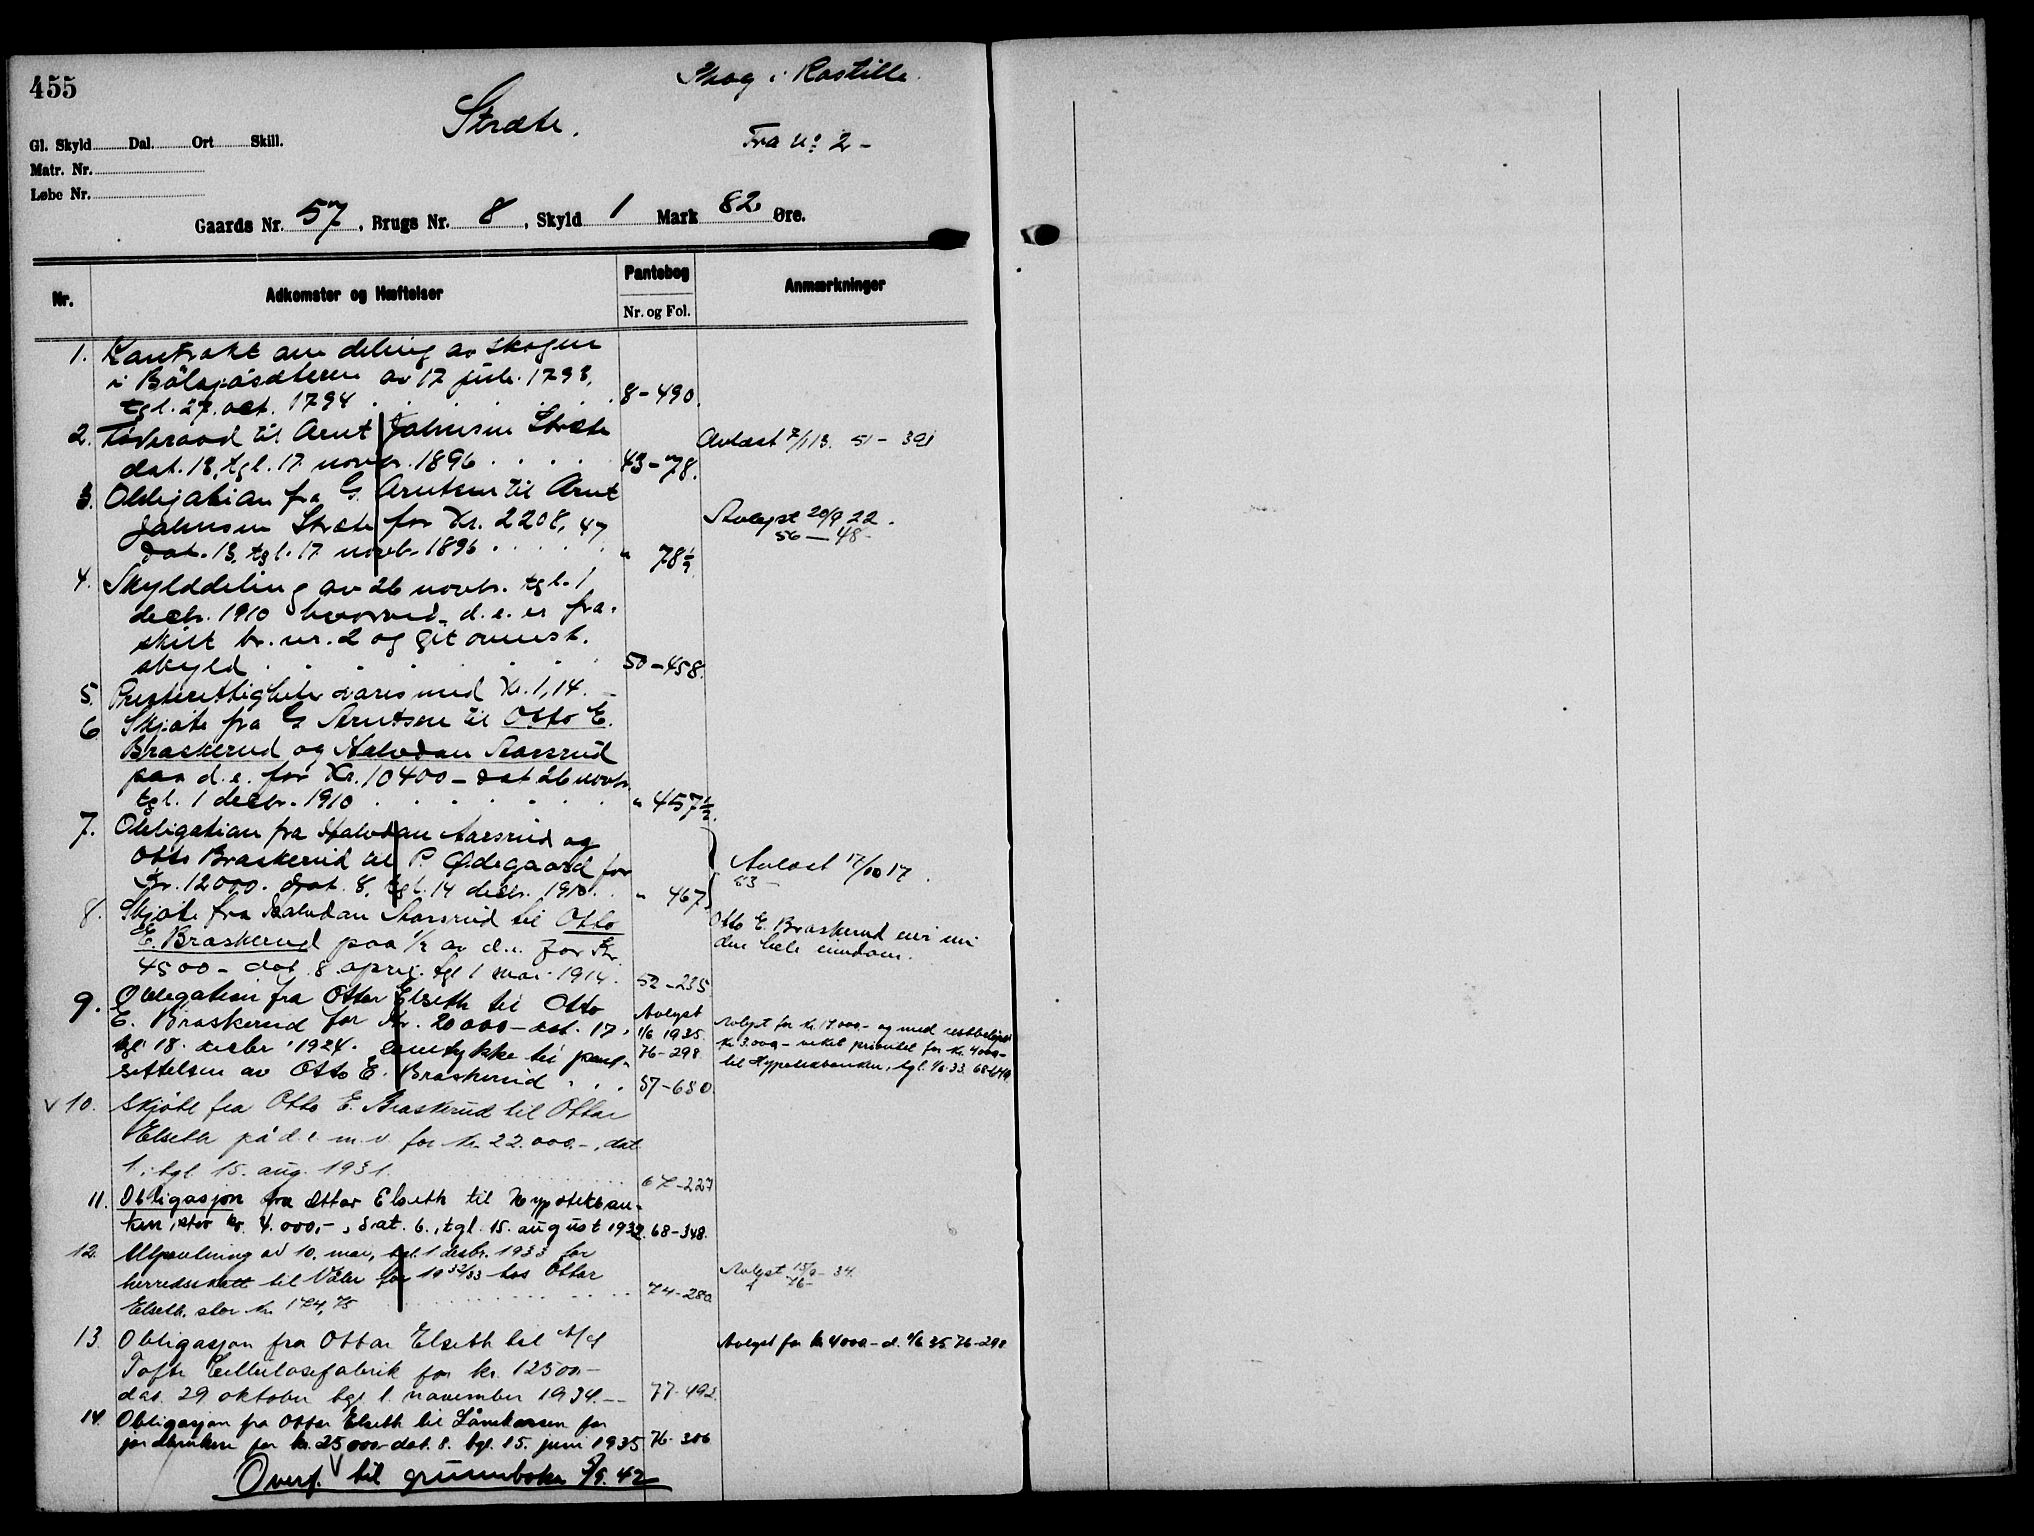 455
Skog i Kastille.
Stræte.
Fra no 2 -
Gl. Skyld Dal. Ort Skill.
Matr. Nr.
Løbe Nr.
Gaards Nr. 57, Brugs Nr. 8, Skyld 1 Mark 82 Øre.
Nr. Adkomster og Hæftelser Pantebog Nr. og Fol. Anmærkninger
1. Kontrakt om deling av skogen
i av 17 juli 1793,
tgl. 27. oct. 1794 . . . . 8-490.
2. Føderaad til Arnt Johnsen Stræte Avlæst 7/1 13. 51 - 391
dat. 13, tgl. 17. novbr. 1896 . . . . . 43-78.
3. Obligation fra G. Arntsen til Arnt
Johnsen Stræte for Kr. 2208,47 Avlyst 20/9 22.
dat. 13, tgl. 17. novbr. 1896 . . . . . " 78 56 - 48 -
4. Skylddeling av 26 novbr. tgl. 1
decbr. 1910 hvorved d. e. er fra-
skilt br. nr. 2 og git omnst.
skyld . . . . . . . . 50-458.
5. Presterettigheter svares med Kr. 1,14. -
6 Skjøte fra G Arntsen til Otto E.
Braskerud og Halvdan Aarsrud
paa d. e. for Kr. 10400 - dat 26 novbr
tgl. 1 decbr. 1910 . . . . . . " 457 1/2.
7. Obligation fra Halvdan Aarsrud og
Otto Braskerud til P. Ødegaard for Avlæst 17/10 17.
Kr. 12000. dat. 8, tgl. 14 decbr. 1910. . " 467. 53 -
8. Skjøte fra Halvdan Aarsrud til Otto
E. Braskerud paa 1/2 av d. e. for Kr. Otto E. Braskerud eier nu
4500 - dat. 8 april. tgl 1 mai 1914. 52-235 den hele eiendom.
9. Obligation fra Ottar Elseth til Otto Avlyst
E. Braskerud for Kr. 20000 - dat. 17, 1/6 1935. Avlyst for kr. 17000.- og med restbeløpet
tgl 18. decbr 1924. Samtykke til pant- 76-298 kr. 3.000 - veket prioritet for kr. 4000 -
settelsen av Otto E. Braskerud . . . 57-680. til Hypotekbanken, tgl.
v 10. Skjøte fra Otto E. Braskerud til Ottar
Elseth på d. e. m. v. for kr. 22.000.-, dat
1, tgl. 15. aug. 1931. 67-227
11. Obligasjon fra Ottar Elseth til Hypotekban-
ken, stor kr. 4.000,-, dat. 6., tgl. 15. august 1932. 68-348.
12. Utpantning av 10. mai, tgl. 1 desbr. 1933 for
herredsskatt til Våler for 1932/33 hos Ottar Avlyst 34.
Elseth, stor kr. 174,75 . . . . . 74-280
13. Obligasjon fra Ottar Elseth til A/S Avlyst for kr 4000.- d. 1/6 35 76-298
Tofte Cellulosefabrik for kr. 12500.-
dat. 29 oktober tgl 1. november 1934. -- 77-492.
14. Obligasjon fra Ottar Elseth til Lånekassen for
jordbrukere for kr. 25000.- dat. 8. tgl. 15. juni 1935 76-306
Overf. til grunnboken 5/9. 42